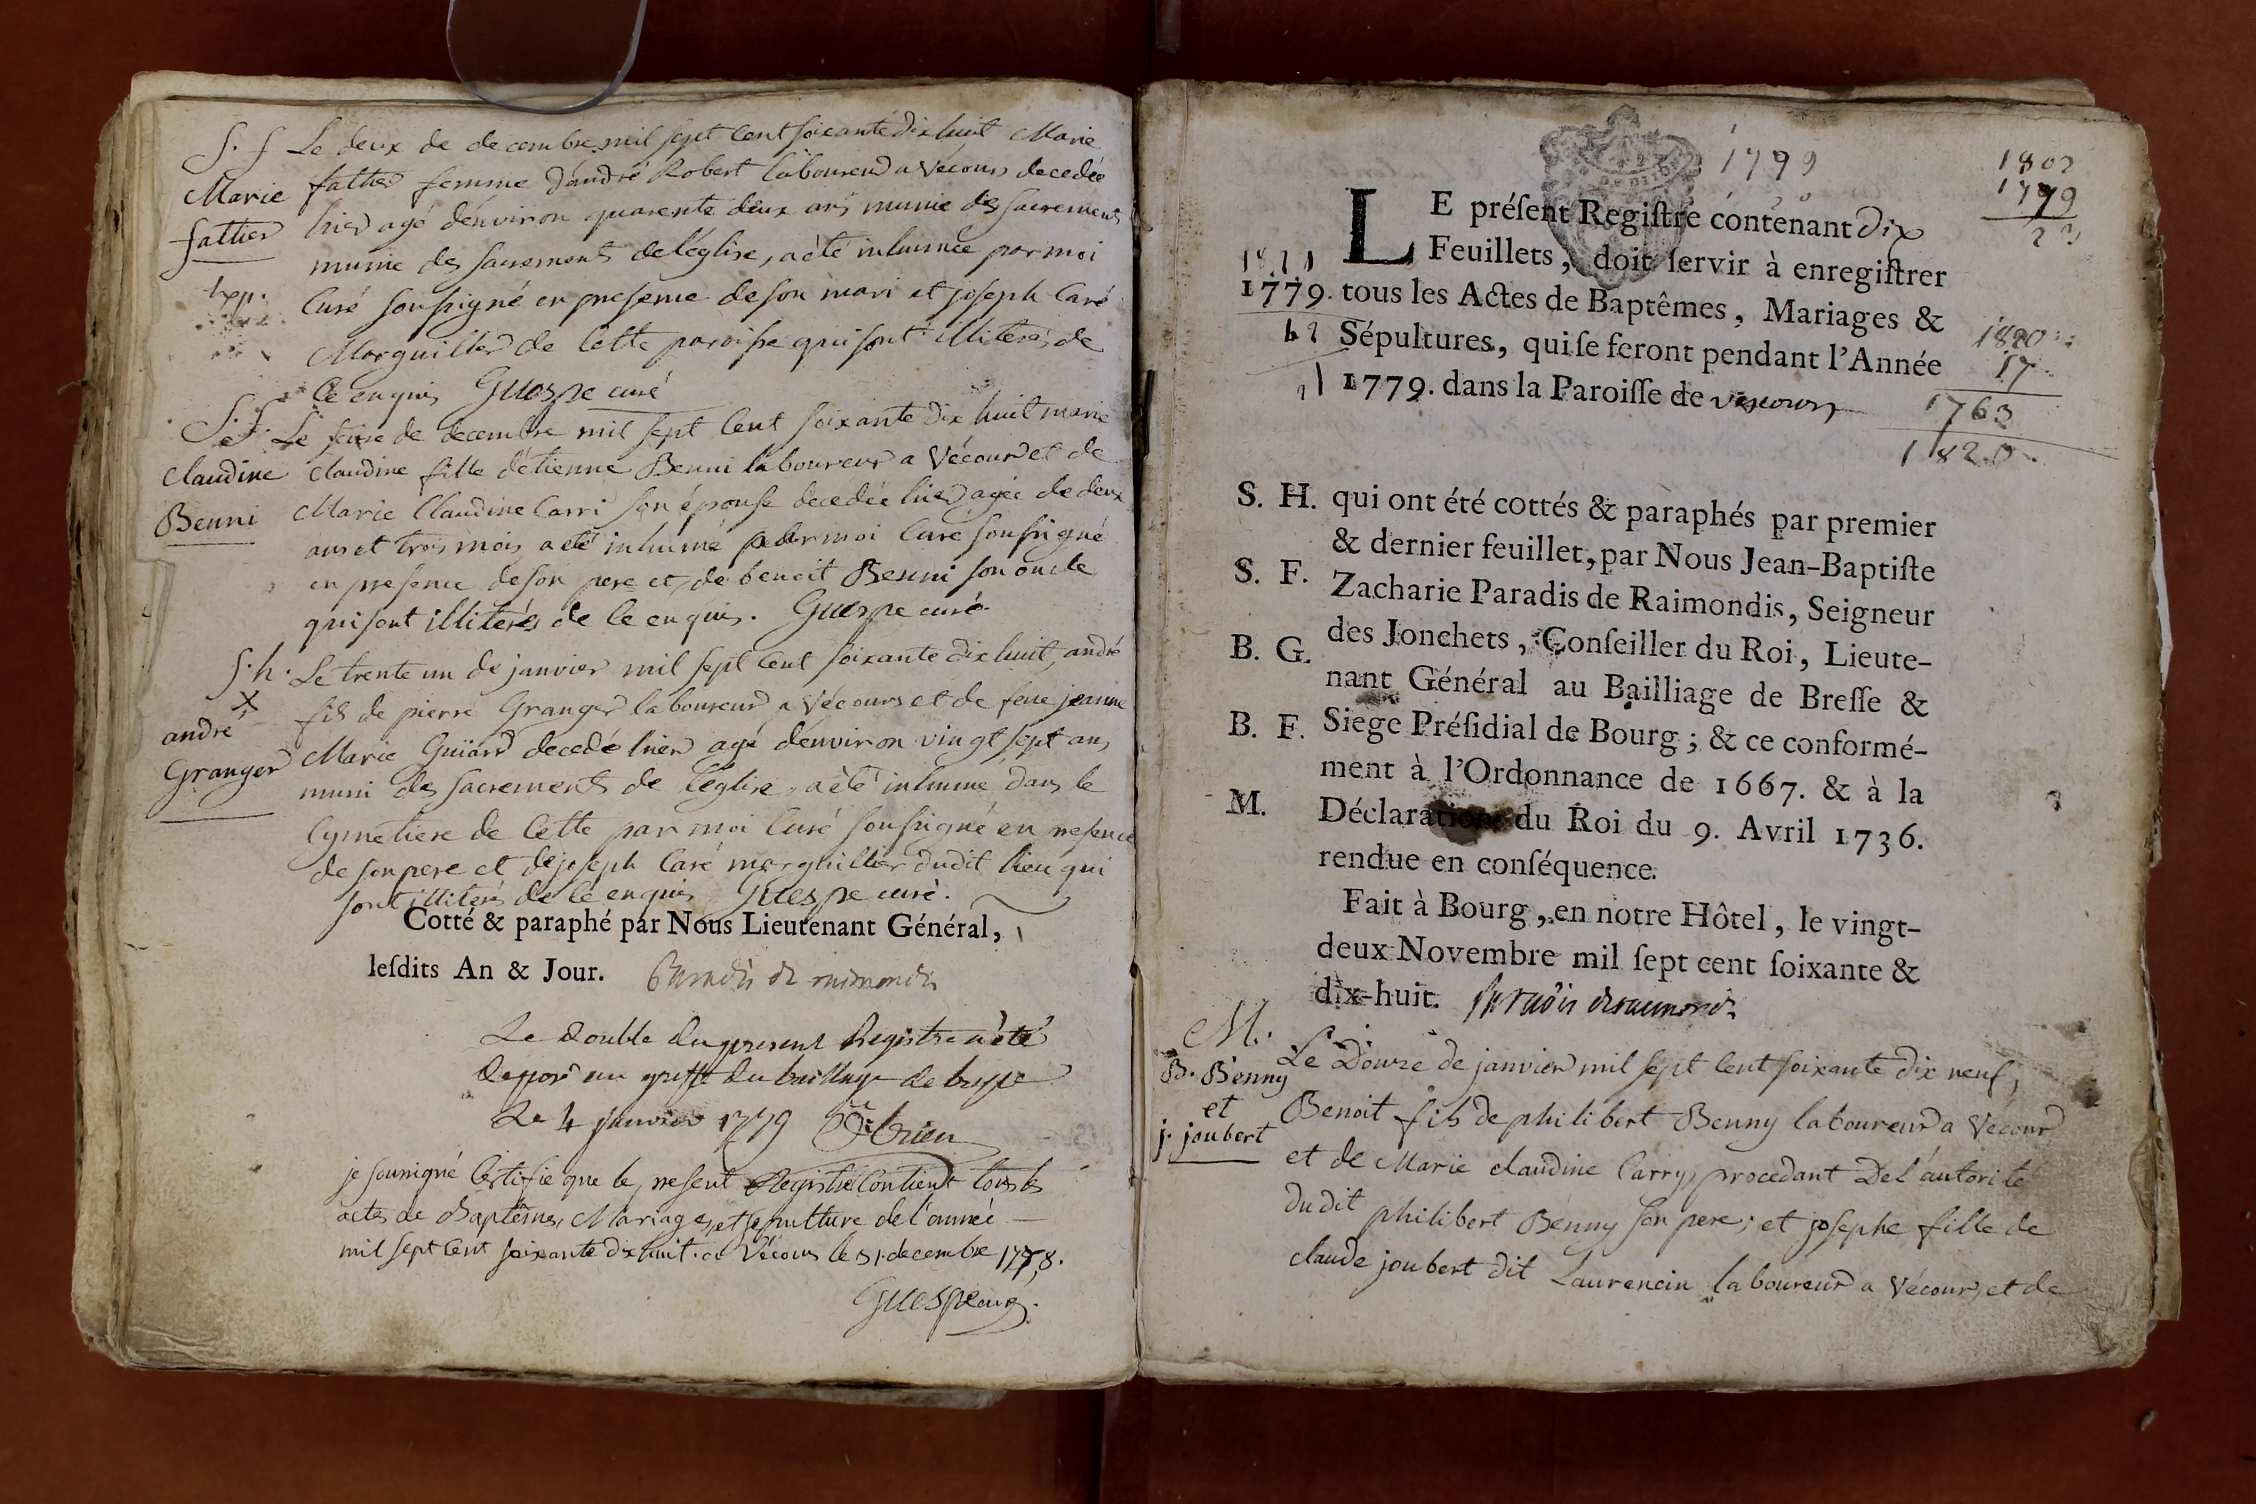 S. f
Le deux de decembre mil sept cent soixante dix huit Marie
Marie
fattier
fattier femme d'andré Robert laboureur a Vécours decedée
hier agé d'environ quarente deux ans munie des sacrements
munie des sacrements de l'église, a èté inhumée par moi
Curé soussigné en presence de son mari et joseph Caré
Marguillier de Cette paroisse qui sont illiterés de
Ce enquis Guespe curé
S. f.
Le seize de decembre mil sept cent soixante dix huit marie
claudine
Benni
claudine fille d'étienne Benni laboureur a Vécour et de
Marie Claudine Carri son épouse decedée hier agée de deux
ans et trois mois a eté inhumé par moi Curé soussigné
en presence de son pere et de benoit Benni son oncle
qui sont illiterés de Ce enquis. Guespe curé
S. h.
Le trente un de janvier mil sept cent soixante dix huit, andré
X
andré
Granger
fils de pierre Granger laboureur a Vécours et de feue jeanne
Marie Guiard decedé hier agé d'environ vingt sept ans
muni des sacrements de l'église, a èté inhumé dans le
Cymetiere de Cette par moi Curé soussigné en presence
de son pere et de joseph Caré marguillier dudit lieu qui
sont illiterés de Ce enquis Guespe curé.
Cotté & paraphé par Nous Lieutenant Général,
lesdits An & Jour. Paradis de raimondis
Le double du present Registre a èté
deposé au greffe du bailliage de bresse
Le 4 janvier 1779
je soussigné Certifie que le present Registre Contient tous les
actes de Baptêmes, Mariages, et sepulture de l'année
mil sept cent soixante dix huit. a Vécours le 31. decembre 1778.
Guespe curé.
1799
1802
1779
23
LE préſent Regiſtre contenant dix
Feuillets, doit ſervir à enregiſtrer
1779. tous les Actes de Baptêmes, Mariages &
Sépultures, qui ſe feront pendant l'Année
1779. dans la Paroiſſe de vescours
1820
17
1763
1820.
S. H. qui ont été cottés & paraphés par premier
& dernier feuillet, par Nous Jean-Baptiſte
S. F. Zacharie Paradis de Raimondis, Seigneur
des Jonchets, Conſeiller du Roi, Lieute-
B. G. nant Général au Bailliage de Breſſe &
B. F. Siege Préſidial de Bourg; & ce conformé-
ment à l'Ordonnance de 1667. & à la
M. Déclaration du Roi du 9. Avril 1736.
rendue en conſéquence.
Fait à Bourg, en notre Hôtel, le vingt-
deux Novembre mil ſept cent ſoixante &
dix-huit. Paradis de raimondis
M.
B. Benny
et
j. joubert
Le Douze de janvier mil sept cent soixante dix neuf,
Benoit fils de philibert Benny laboureur a Vécour
et de Marie claudine Carry, procedant De l'autorité
dudit philibert Benny son pere; et josephe fille de
claude joubert dit Laurencin laboureur a Vécour, et de